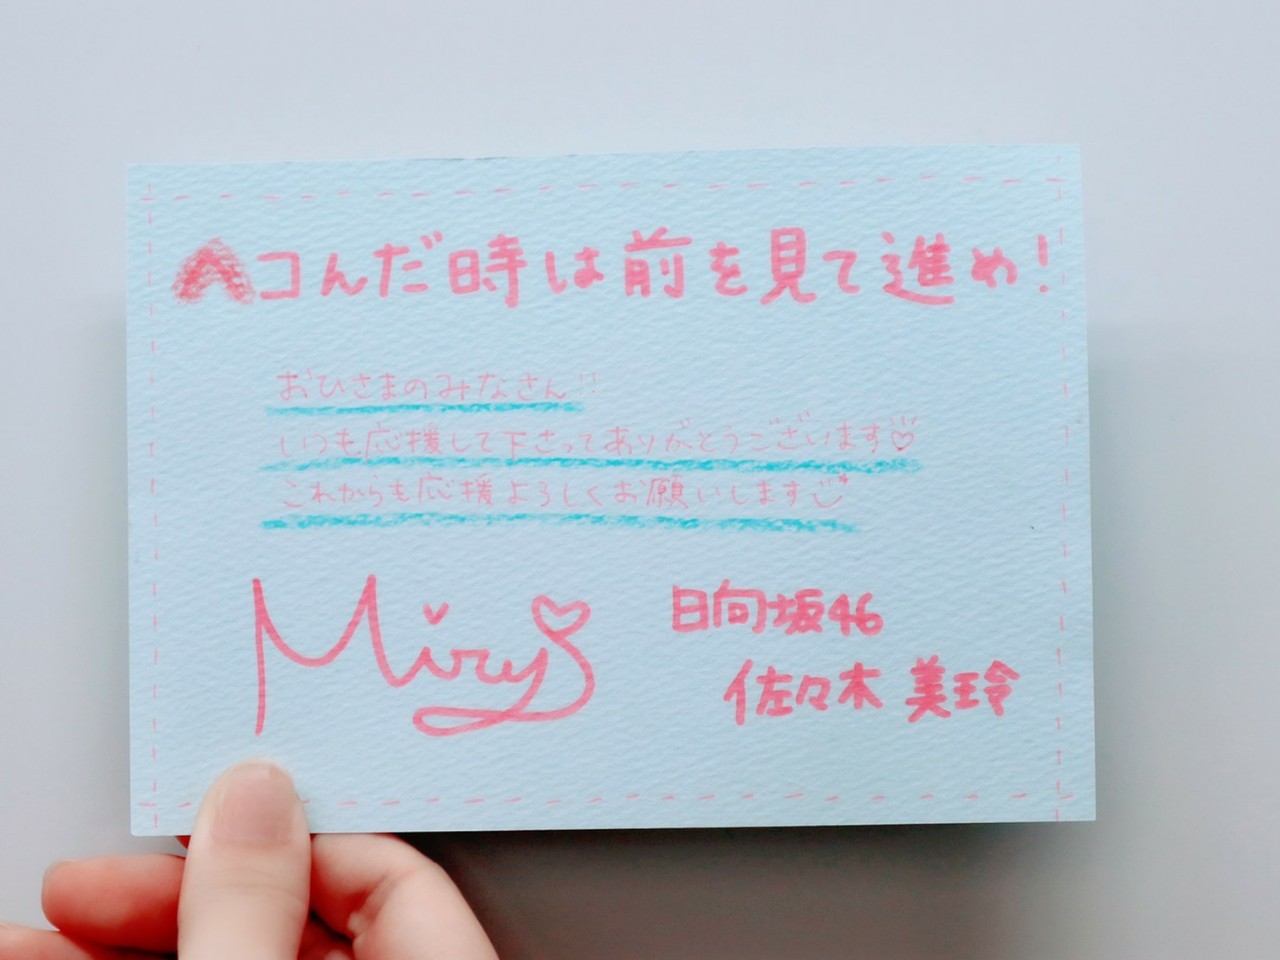 ヘコんだ時は前を見て進め!
おひさまのみなさん!!
いつも応援して下さってありがとうございます♡
これからも応援よろしくお願いします
Miry
日向坂46
佐々木 美玲